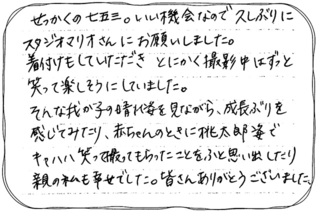 せっかくの七五三。いい機会なので久しぶりに
スタジオマリオさんにお願いしました。
着付けもしていただき とにかく撮影中はずっと
笑って楽しそうにしていました。
そんな我が子の晴れ姿を見ながら、成長ぶりを
感じてみたり、赤ちゃんのときに桃太郎姿で
キャハハ 笑って撮ってもらったことをふと思い出したり
親の私も幸せでした。皆さんありがとうございました。